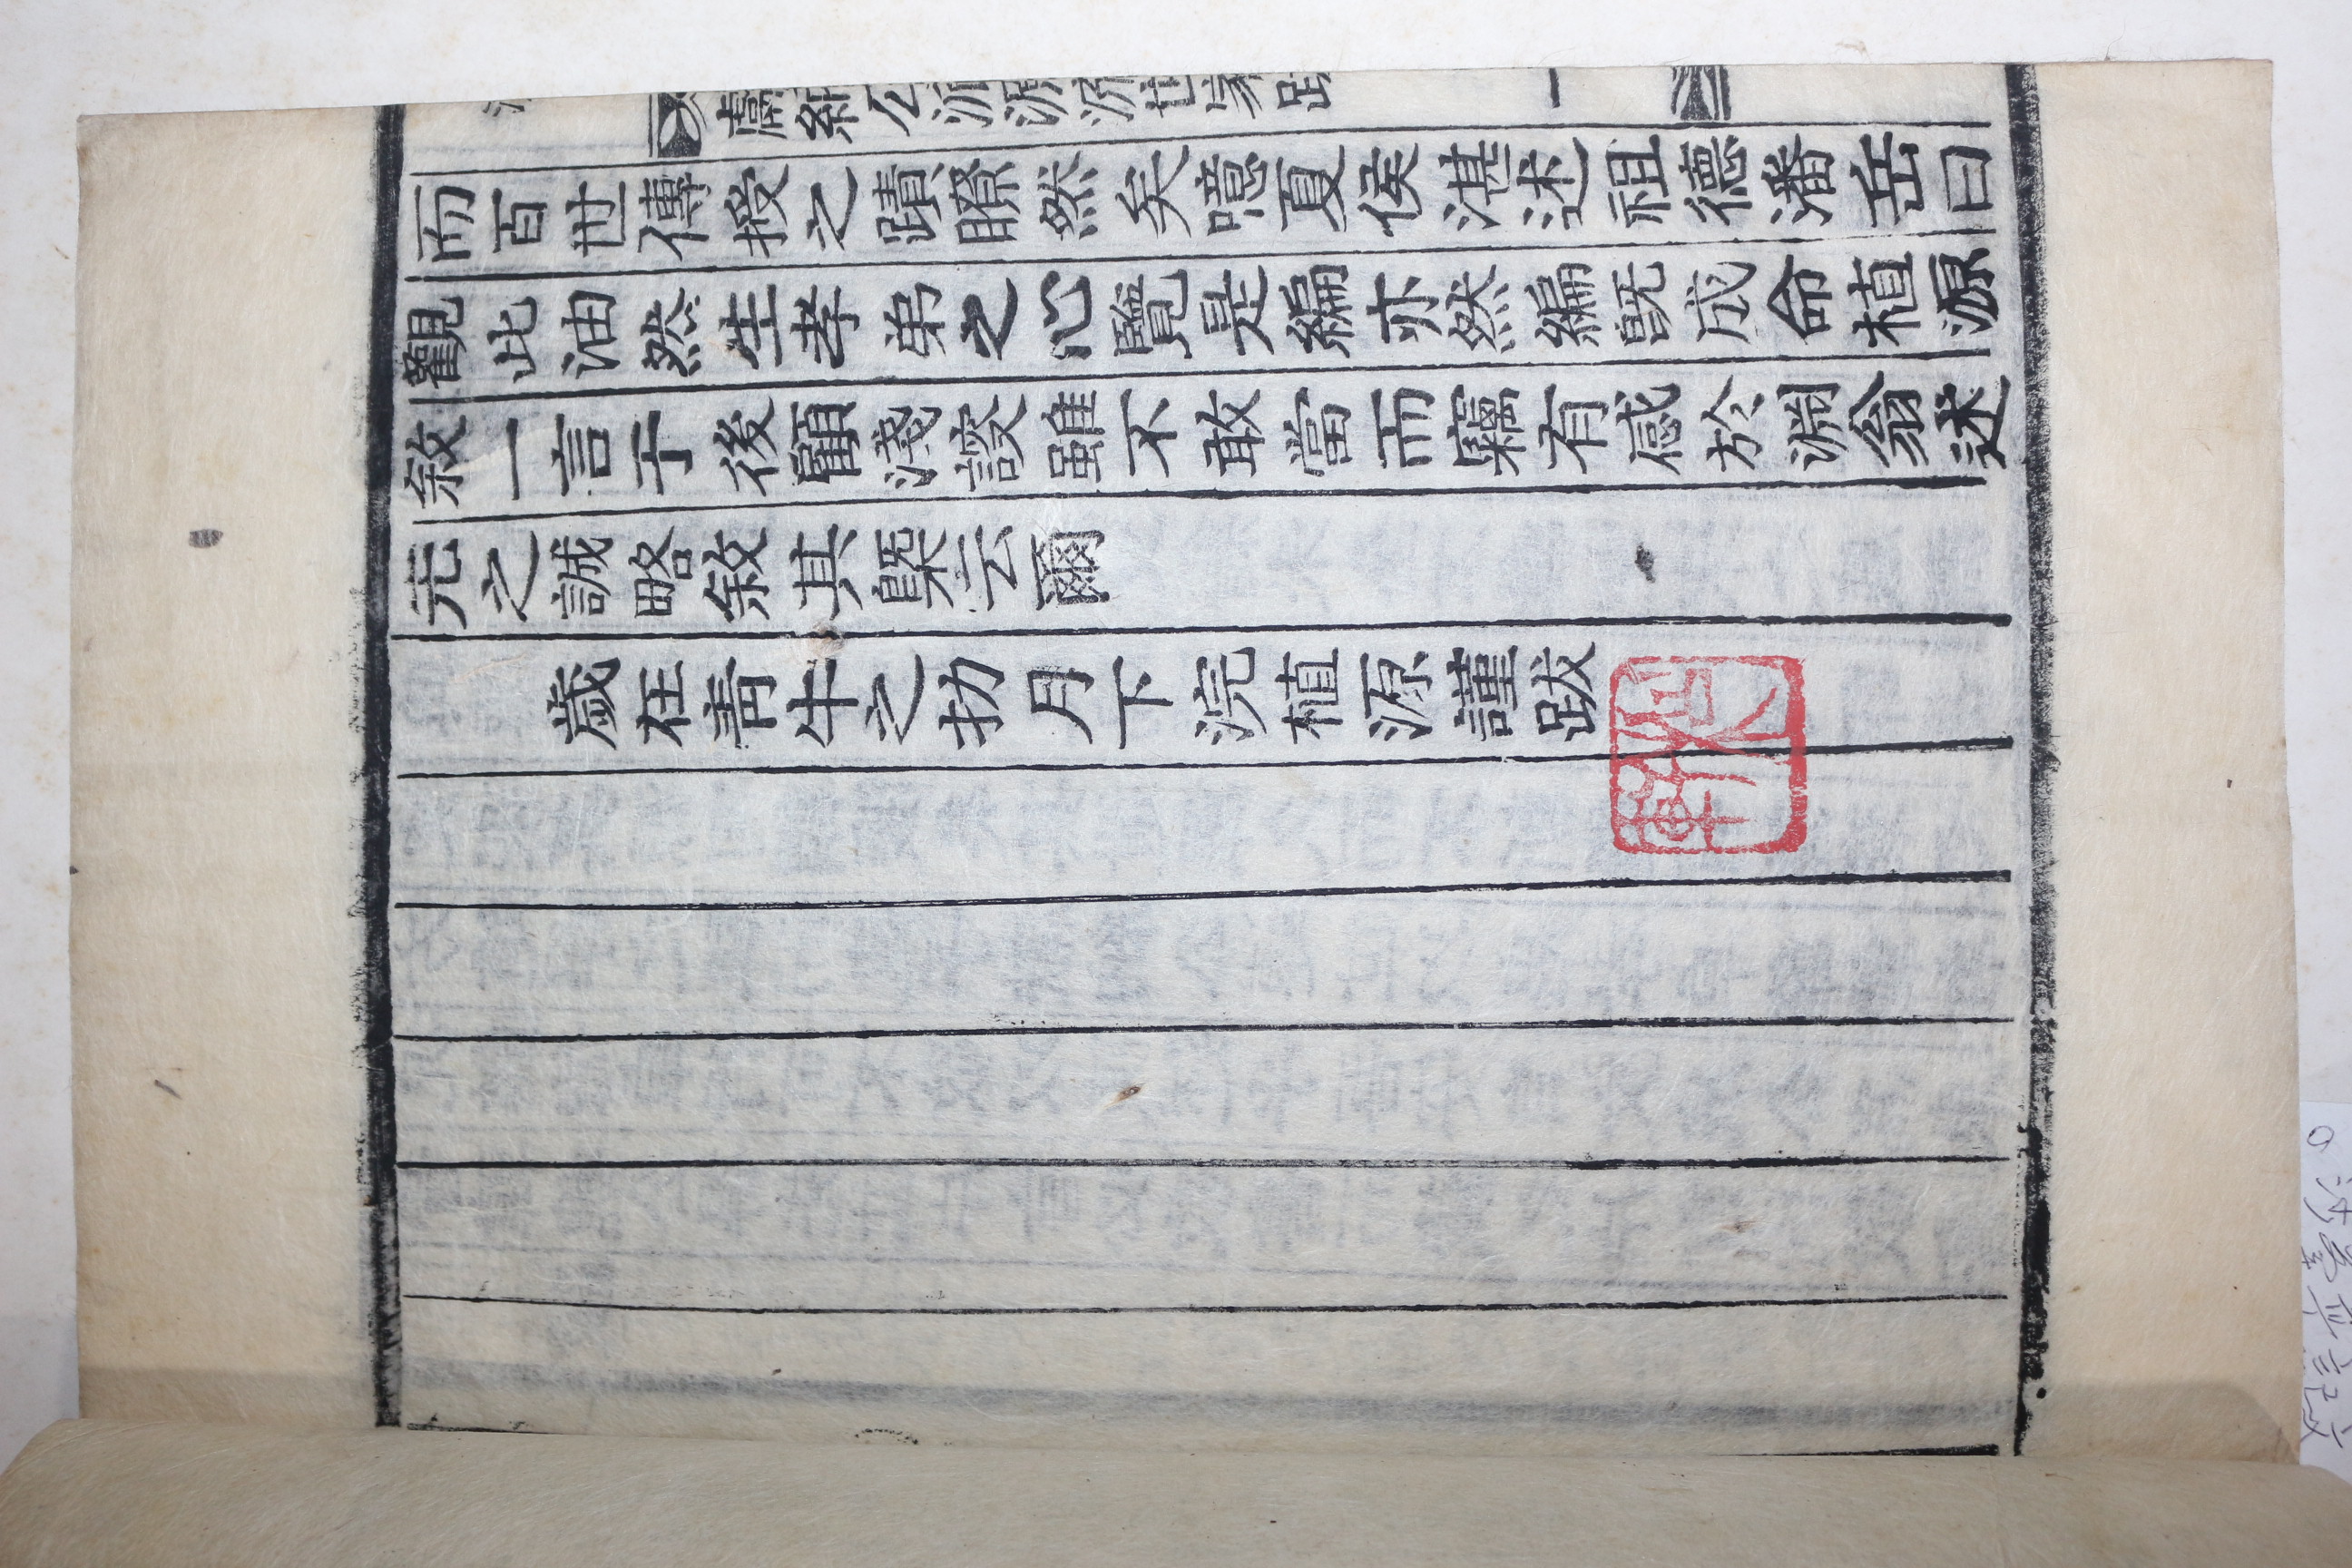 公派源流世家跋 一
而百世傳授之蹟瞭然矣噫夏侯湛述祖德潘岳曰
觀此油然生孝弟之心覽是編亦然編旣成命植源
敘一言于後顧淺謏雖不敢當而竊有感於淵翁述
先之誠略敘其槩云爾
歲在靑牛之扐月下浣植源謹跋
軒